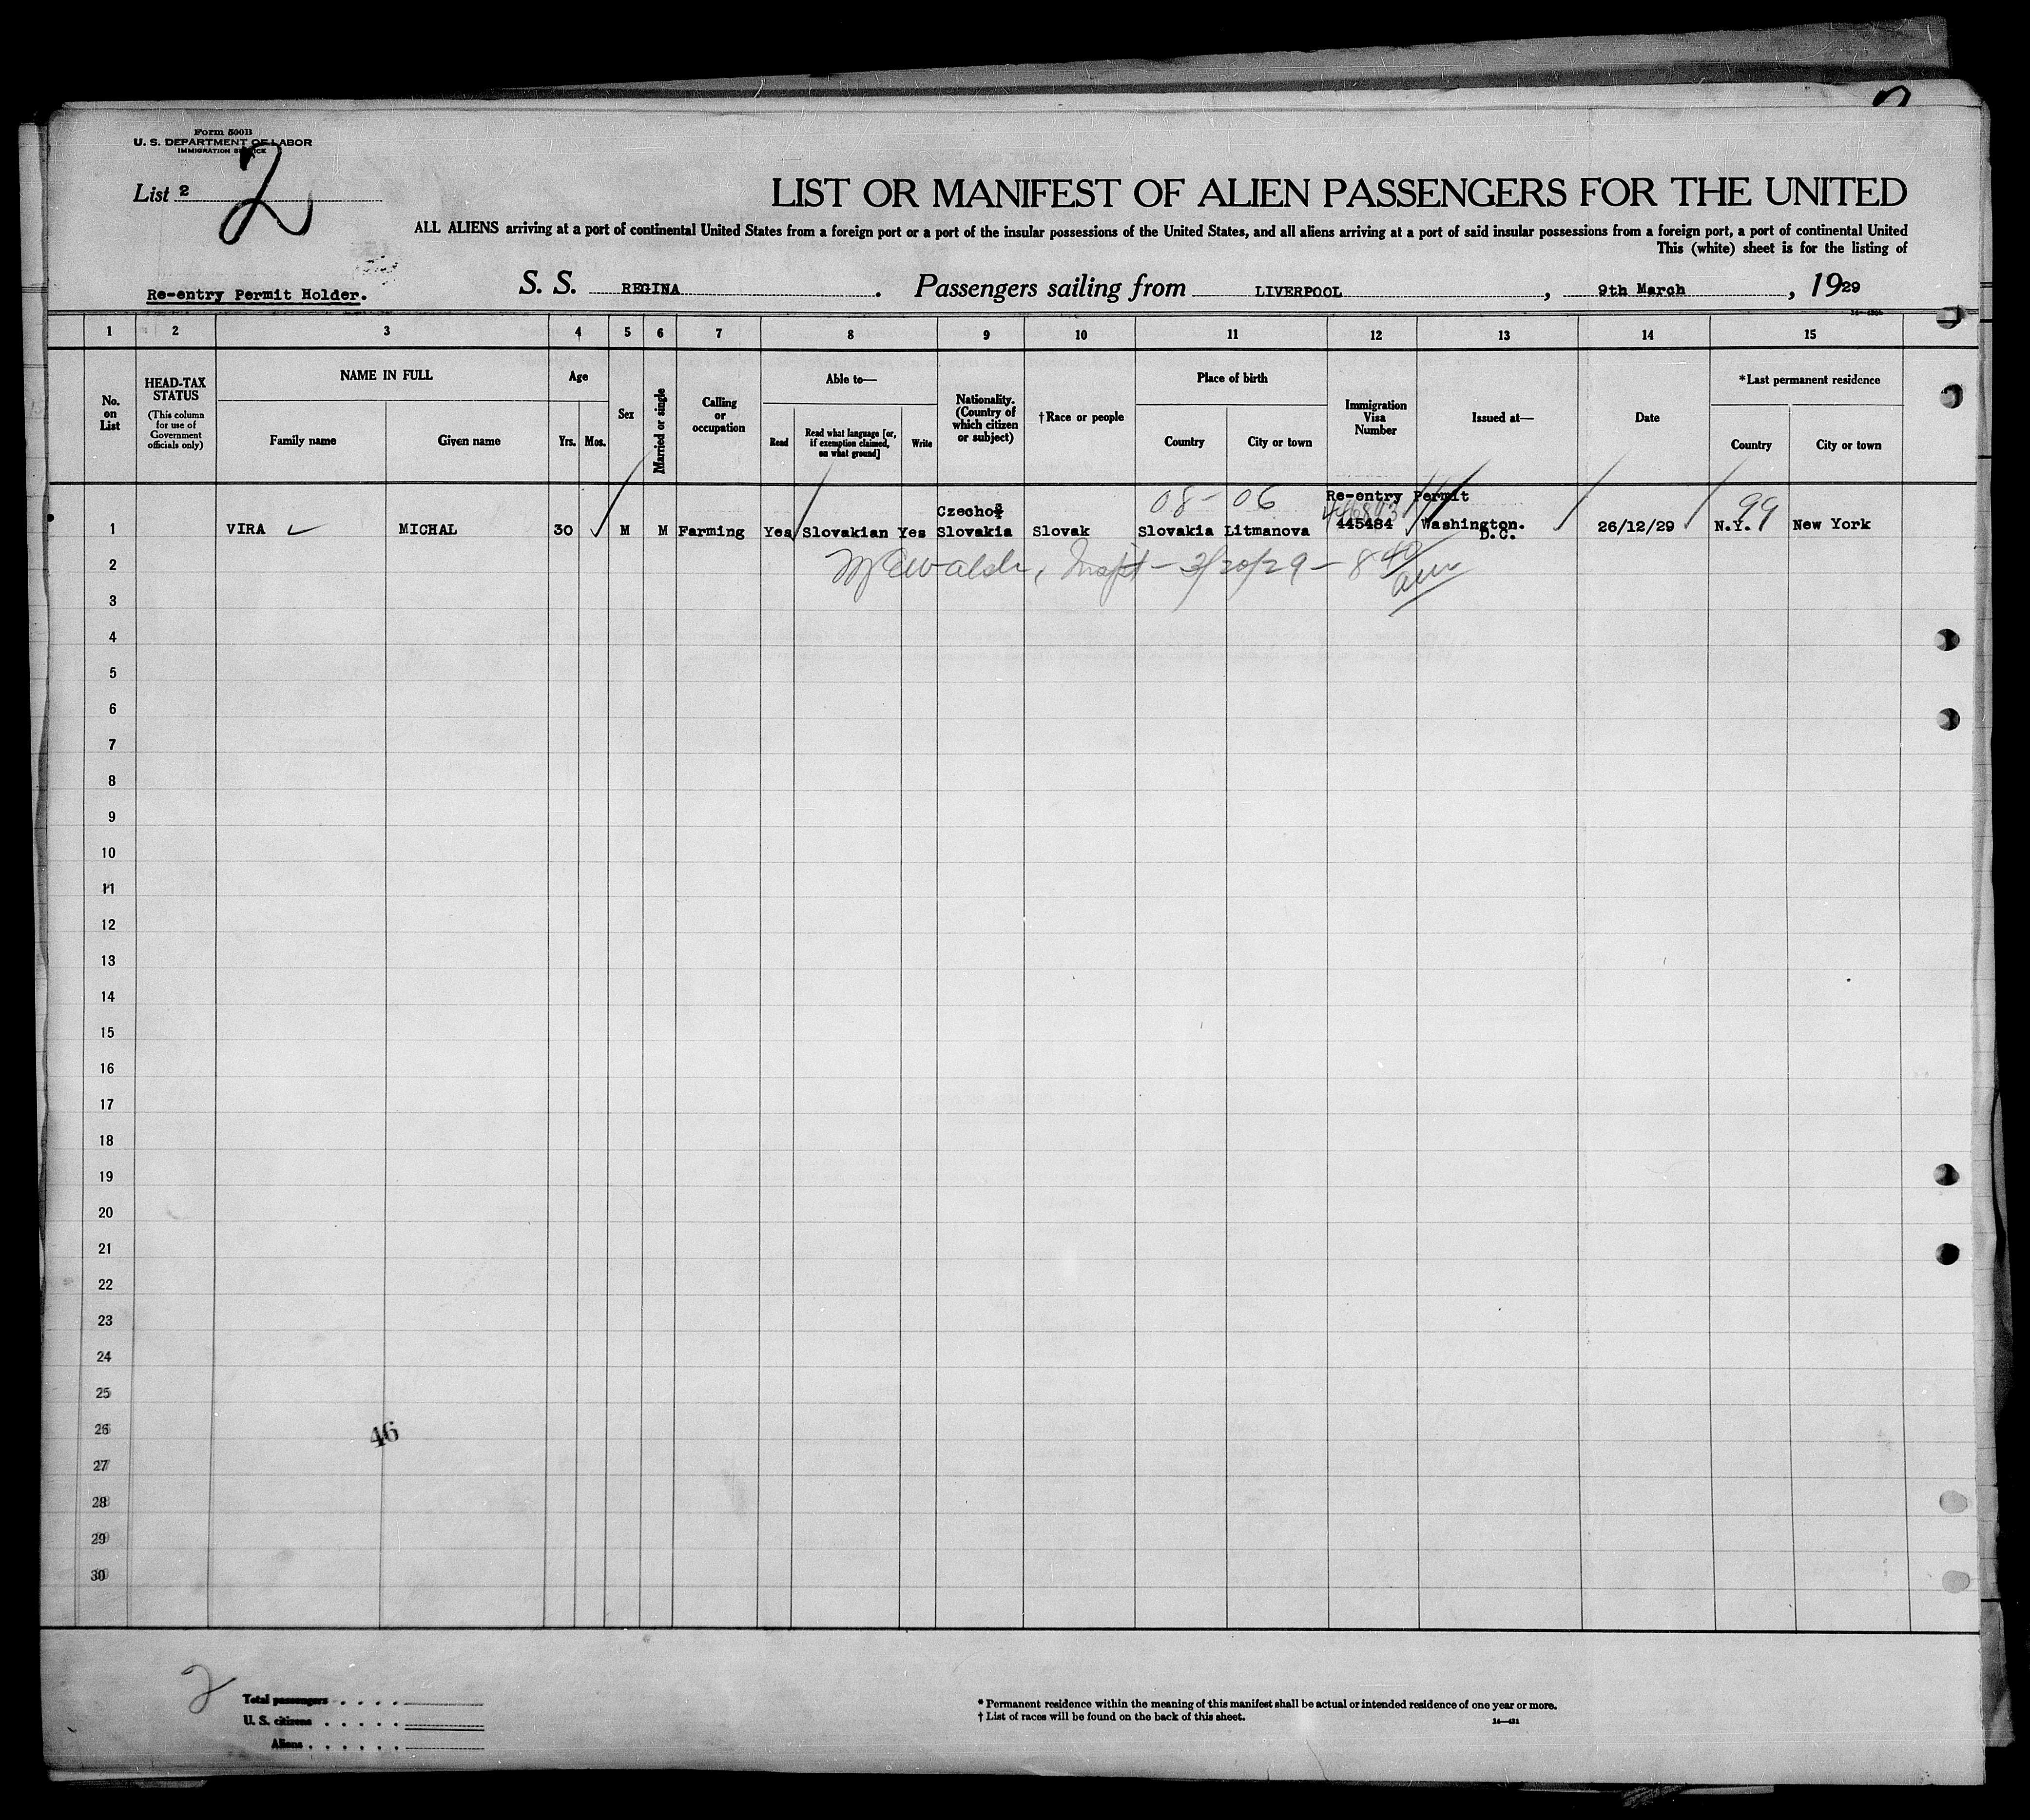 Form 500B
U. S. DEPARTMENT OF LABOR
IMMIGRATION SERVICE
List 2
2
LIST OR MANIFEST OF ALIEN PASSENGERS FOR THE UNITED
ALL ALIENS arriving at a port of continental United States from a foreign port or a port of the insular possessions of the United States, and all aliens arriving at a port of said insular possessions from a foreign port, a port of continental United
This (white) sheet is for the listing of
Re-entry Permit Holder.
S. S. REGINA. Passengers sailing from LIVERPOOL, 9th March, 1929
1 2 3 4 5 6 7 8 9 10 11 12 13 14 15
No. on List
HEAD-TAX STATUS
(This column for use of Government officials only)
NAME IN FULL
Family name
Given name
Age
Yrs. Mos.
Sex
Married or single
Calling or occupation
Able to—
Read
Read what language [or, if exemption claimed, on what ground]
Write
Nationality. (Country of which citizen or subject)
†Race or people
Place of birth
Country
City or town
Immigration Visa Number
Issued at—
Date
*Last permanent residence
Country
City or town
08- 06 Re-entry Permit 99
1 VIRA MICHAL 30 M M Farming Yes Slovakian Yes Czecho Slovakia Slovak Slovakia Litmanova 445484 Washington. D.C. 26/12/29 N.Y. New York
2 3/20/29 - 8 40 am
3
4
5
6
7
8
9
10
11
12
13
14
15
16
17
18
19
20
21
22
23
24
25
26
46
27
28
29
30
2
Total passengers
U. S. citizens
Aliens
* Permanent residence within the meaning of this manifest shall be actual or intended residence of one year or more.
† List of races will be found on the back of this sheet.
14—431